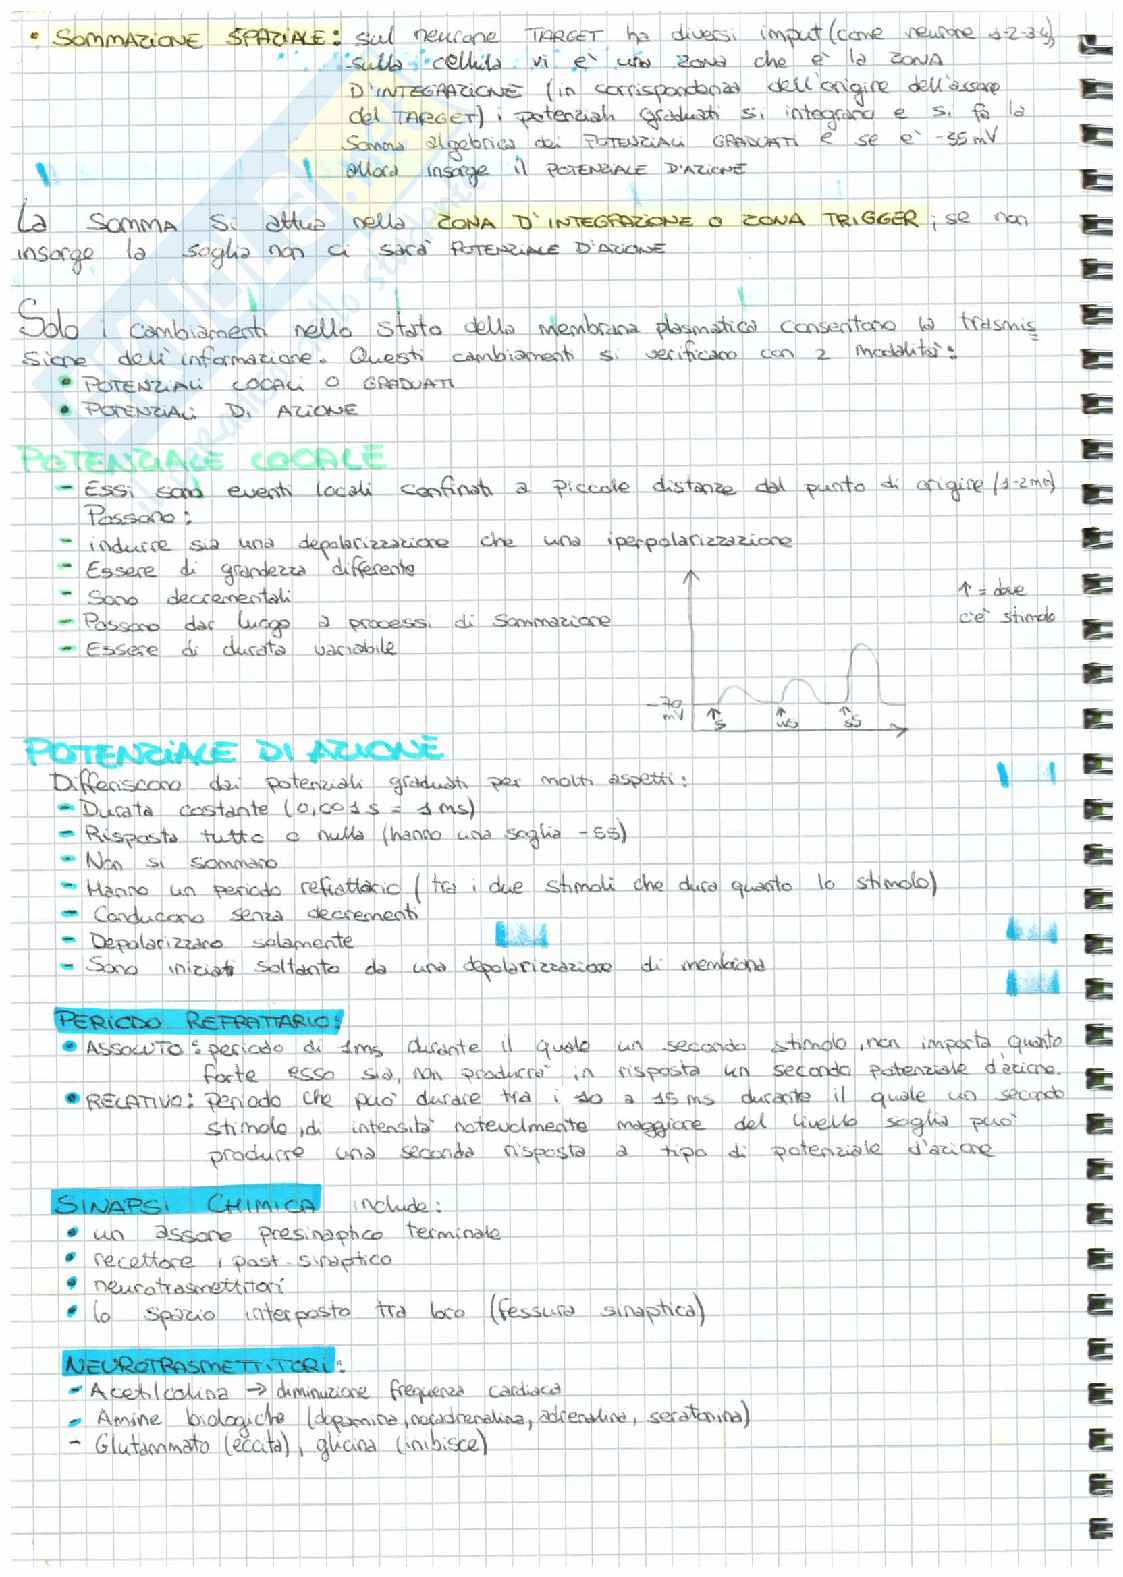 • SOMMAZIONE SPAZIALE: sul neurone TARGET ha diversi imput (come neurone 1-2-3-4)
sulla cellula vi è una zona che è la ZONA
D'INTEGRAZIONE (in corrispondenza dell'origine dell'assone
del TARGET) i potenziali graduati si integrano e si fa la
somma algebrica dei POTENZIALI GRADUATI e se è -55 mV
allora insorge il POTENZIALE D'AZIONE
La SOMMA si attua nella ZONA D'INTEGRAZIONE O ZONA TRIGGER; se non
insorge la soglia non ci sarà POTENZIALE D'AZIONE
Solo i cambiamenti nello stato della membrana plasmatica consentono la trasmis
sione dell'informazione. Questi cambiamenti si verificano con 2 modalità:
• POTENZIALI LOCALI O GRADUATI
• POTENZIALI DI AZIONE
POTENZIALE LOCALE
- Essi sono eventi locali confinati a piccole distanze dal punto di origine (1-2mm)
Possono:
- indurre sia una depolarizzazione che una iperpolarizzazione
- Essere di grandezza differente
- Sono decrementali
- Possono dar luogo a processi di sommazione
- Essere di durata variabile
↑ = dove
c'è stimolo
-70
mV
↑ S
↑
↑ SS
POTENZIALE DI AZIONE
Differiscono dai potenziali graduati per molti aspetti:
- Durata costante (0,001s = 1ms)
- Risposta tutto o nulla (hanno una soglia -55)
- Non si sommano
- Hanno un periodo refrattario (tra i due stimoli che dura quanto lo stimolo)
- Conducono senza decrementi
- Depolarizzano solamente
- Sono iniziati soltanto da una depolarizzazione di membrana
PERIODO REFRATTARIO:
• ASSOLUTO: periodo di 1ms durante il quale un secondo stimolo, non importa quanto
forte esso sia, non produrrà in risposta un secondo potenziale d'azione.
• RELATIVO: periodo che può durare tra i 10 a 15 ms durante il quale un secondo
stimolo, di intensità notevolmente maggiore del livello soglia può
produrre una seconda risposta a tipo di potenziale d'azione
SINAPSI CHIMICA include:
• un assone presinaptico terminale
• recettore post-sinaptico
• neurotrasmettitori
• lo spazio interposto tra loro (fessura sinaptica)
NEUROTRASMETTITORI:
- Acetilcolina → diminuzione frequenza cardiaca
- Amine biologiche (dopamina, noradrenalina, adrenalina, seratonina)
- Glutammato (eccita), glicina (inibisce)